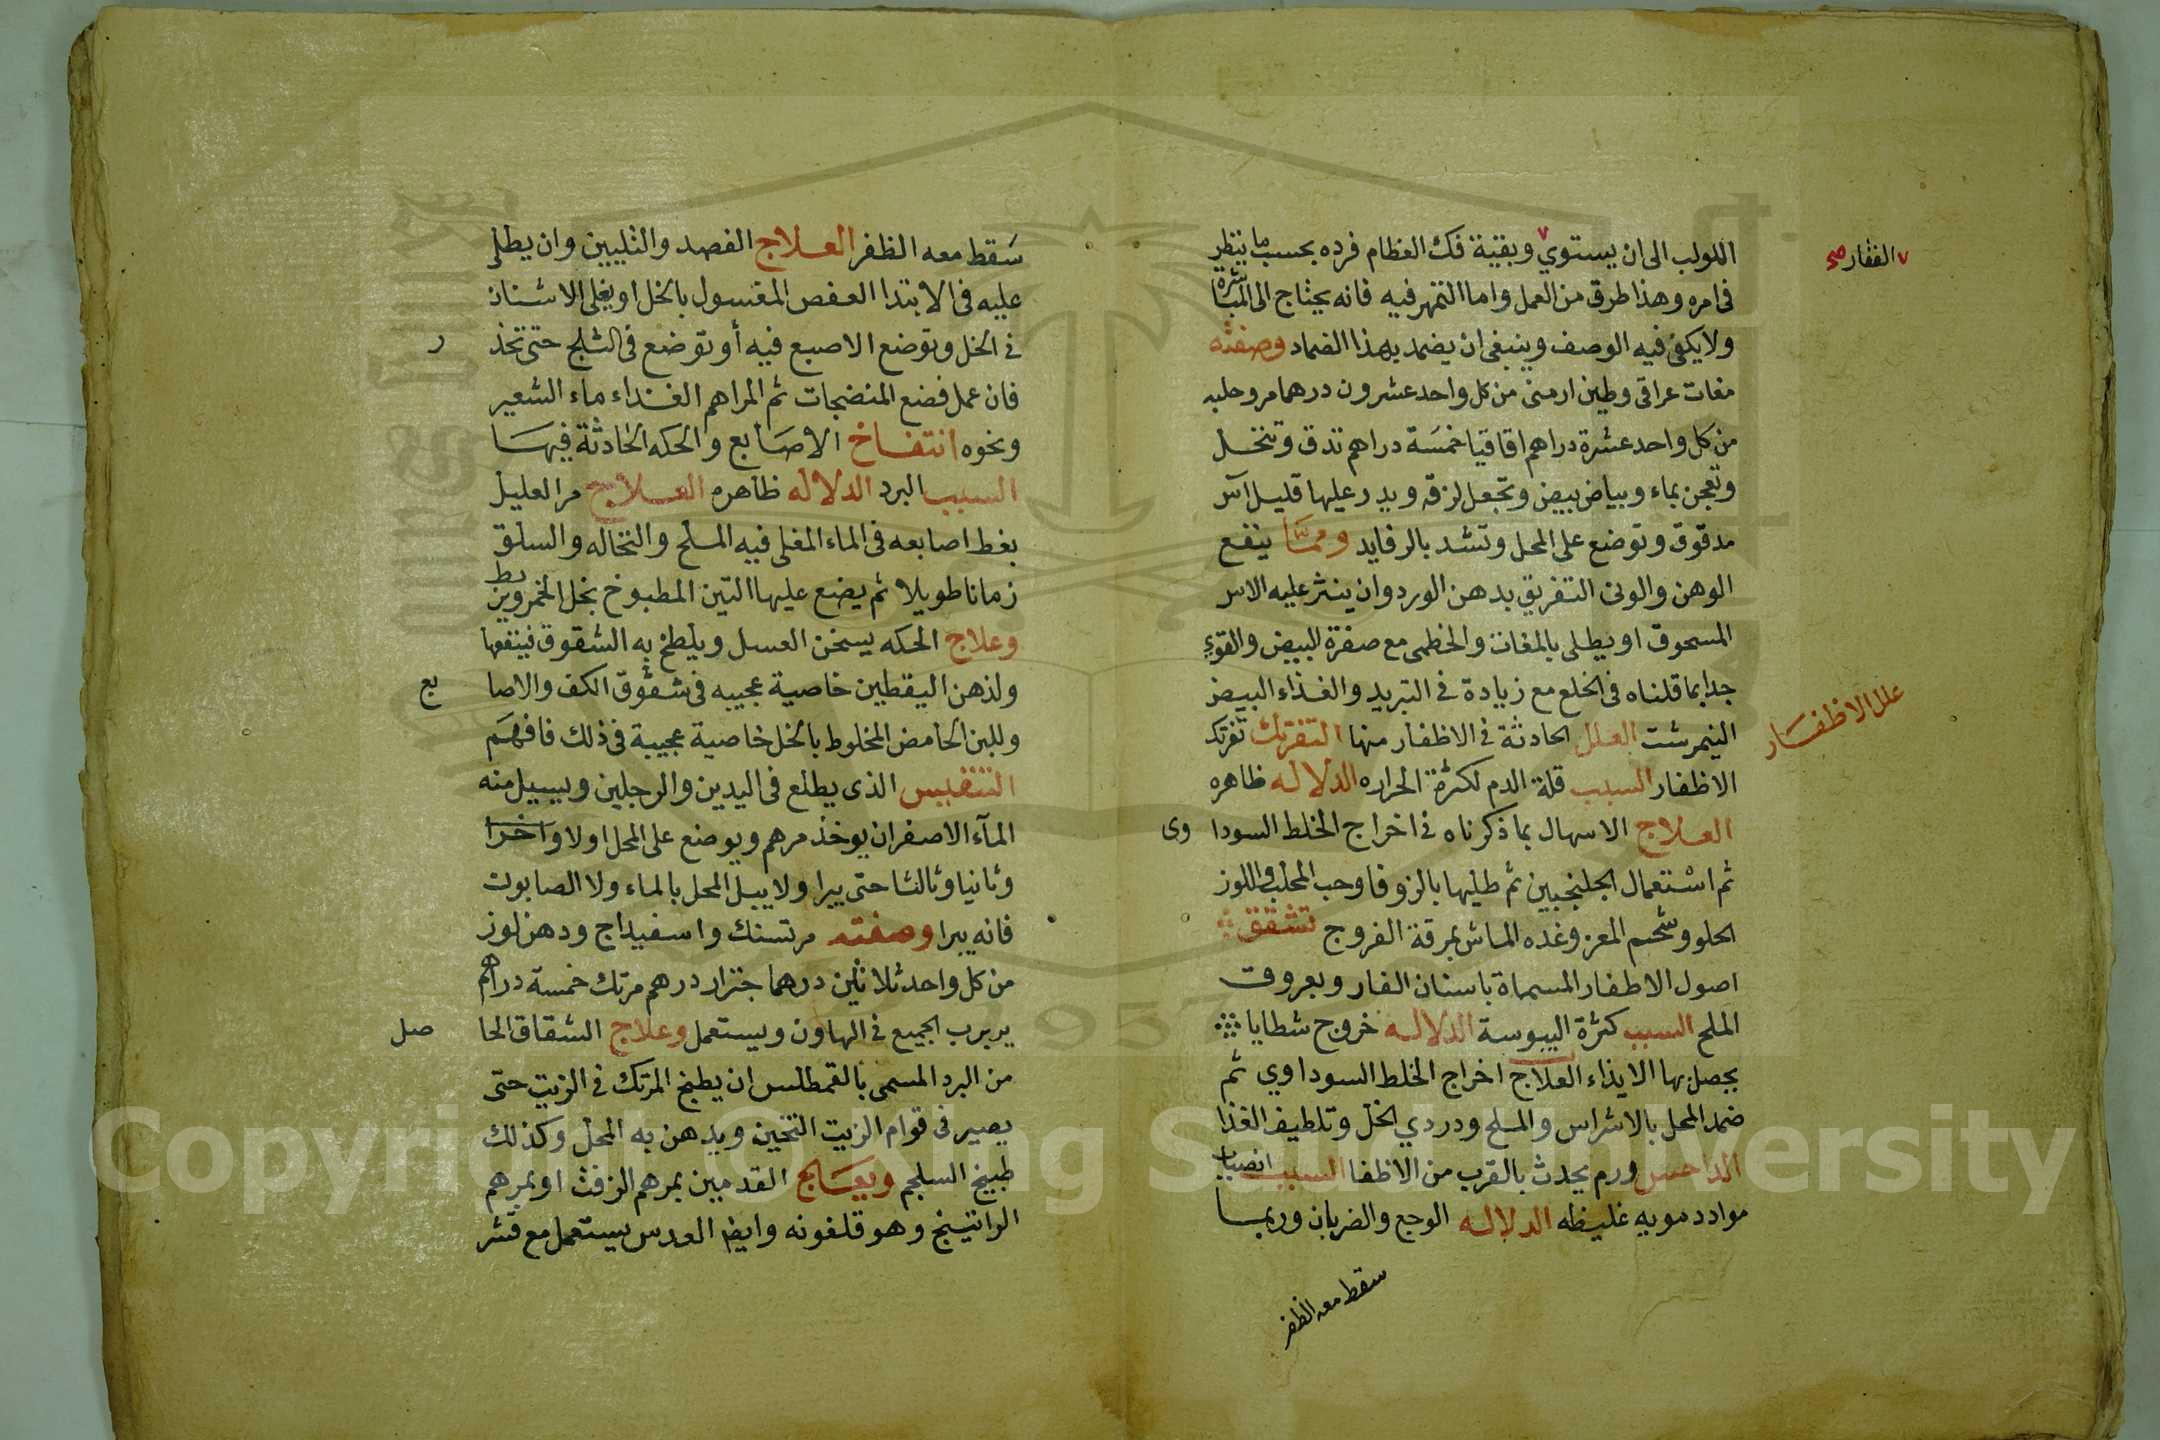 اللولب الى ان يستوي وبقية فك العظام فرده بحسب ما ينظر
الفقار صح
فى امره وهذا طرق من العمل واما التمهر فيه فانه يحتاج الى المباشره
ولا يكفى فيه الوصف وينبغى ان يضمد بهذا الضماد وصفته
مغات عراقى وطين ارمنى من كل واحد عشرون درهما مر وحلبه
من كل واحد عشرة دراهم اقاقيا خمسة دراهم تدق وتنخل
وتعجن بماء وبياض بيض وتجعل لزقه ويدر عليها قليل آس
مدقوق وتوضع على المحل وتشد بالرفايد ومما ينفع
الوهن والونى التفريق بدهن الورد وان ينثر عليه الاس
المسحوق او يطلى بالمغات والخطمى مع صفرة البيض والقوي
جدا بما قلناه فى الخلع مع زيادة فى التبريد والغذاء البيض
النيمرشت العلل الحادثة فى الاظفار منها التفرتك تفرتك
علل الاظفار
الاظفار السبب قلة الدم لكثرة الحراره الدلاله ظاهره
العلاج الاسهال بما ذكرناه فى اخراج الخلط السودا وى
ثم استعمال الجلنجبين ثم طليها بالزوفا وحب المحلب واللوز
الحلو وشحم المعز وغده الماش بمرقة الفروج تشقق
اصول الاظفار المسماة باسنان الفار وبعروق
الملح السبب كثرة اليبوسة الدلاله خروج شظايا
يحصل بها الايذاء العلاج اخراج الخلط السوداوي ثم
ضمد المحل بالاشراس والملح ودردي الخل وتلطيف الغذا
الداحس ورم يحدث بالقرب من الاظفا السبب انصباب
مواد دمويه غليظه الدلاله الوجع والضربان وربما
سقط معه الظفر
سقط معه الظفر العلاج الفصد والتليين وان يطلى
عليه فى الابتدا العفص المغسول بالخل او يغلى الاشنان
فى الخل وتوضع الاصبع فيه أو توضع فى الثلج حتى تخذ ر
فان عمل فضع المنضجات ثم المراهم الغذاء ماء الشعير
ونحوه انتفاخ الاصابع والحكه الحادثة فيها
السبب البرد الدلاله ظاهره العلاج مر العليل
بغط اصابعه فى الماء المغلى فيه الملح والنخاله والسلق
زمانا طويلا ثم يضع عليها التين المطبوخ بخل الخمر ويربط
وعلاج الحكه يسخن العسل ويلطخ به الشقوق فينفعها
ولدهن اليقطين خاصية عجيبه فى شقوق الكف والاصا بع
وللبن الحامض المخلوط بالخل خاصية عجيبة فى ذلك فافهم
التنفيس الذى يطلع فى اليدين والرجلين ويسيل منه
المآء الاصفر ان يوخذ مرهم ويوضع على المحل اولا واخرا
وثانيا وثالثا حتى يبرا ولا يبل المحل بالماء ولا الصابون
فانه يبرا وصفته مرتسنك واسفيداج ودهن لوز
من كل واحد ثلاثين درهما جنزار درهم مرتك خمسة دراهم
يربرب الجميع فى الهاون ويستعمل وعلاج الشقاق الحا صل
من البرد المسمى بالقمطلس ان يطبخ المرتك فى الزيت حتى
يصير فى قوام الزيت الثخين ويدهن به المحل وكذلك
طبيخ السلجم ويعالج القدمين بمرهم الزفت او بمرهم
الراتينج وهو قلفونه وايضا العدس يستعمل مع قشر
Copyright © King Saud University
1957